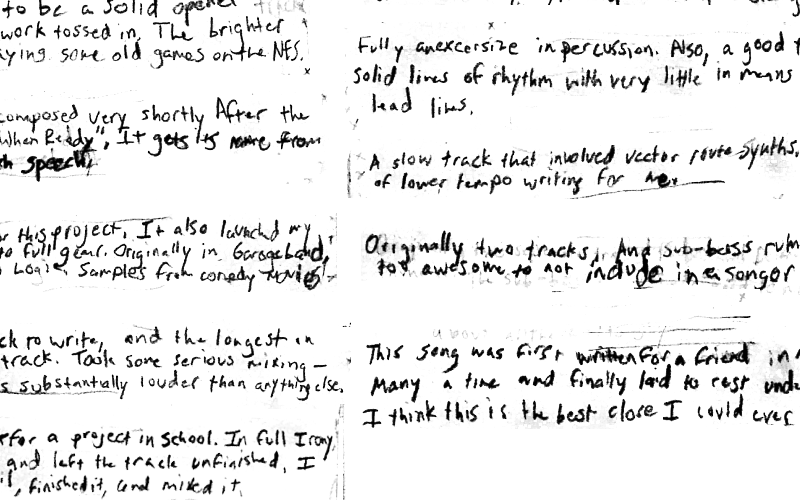 to be a solid opener
work tossed in. The brighter
aying some old games on the NES.
composed very shortly After the
When Ready". It gets its name from
speech,
for this project. It also launched my
to full gear. Originally in GarageBand,
Logic. Samples from comedy movies
ck to write, and the longest in
track. Took some serious mixing —
s substantially louder than anything else.
for a project in School. In full Irony
and left the track unfinished. I
it, finished it, and mixed it.
Fully anexcersize in percussion. Also, a good t
solid lines of rhythm with very little in means
lead lines.
A slow track that involved vector route synths.
of lower tempo writing for me.
Originally two tracks. And sub-bass rum
too awesome to not include in a song or
This song was first written for a friend in
Many a time and finally laid to rest unde
I think this is the best close I could ever